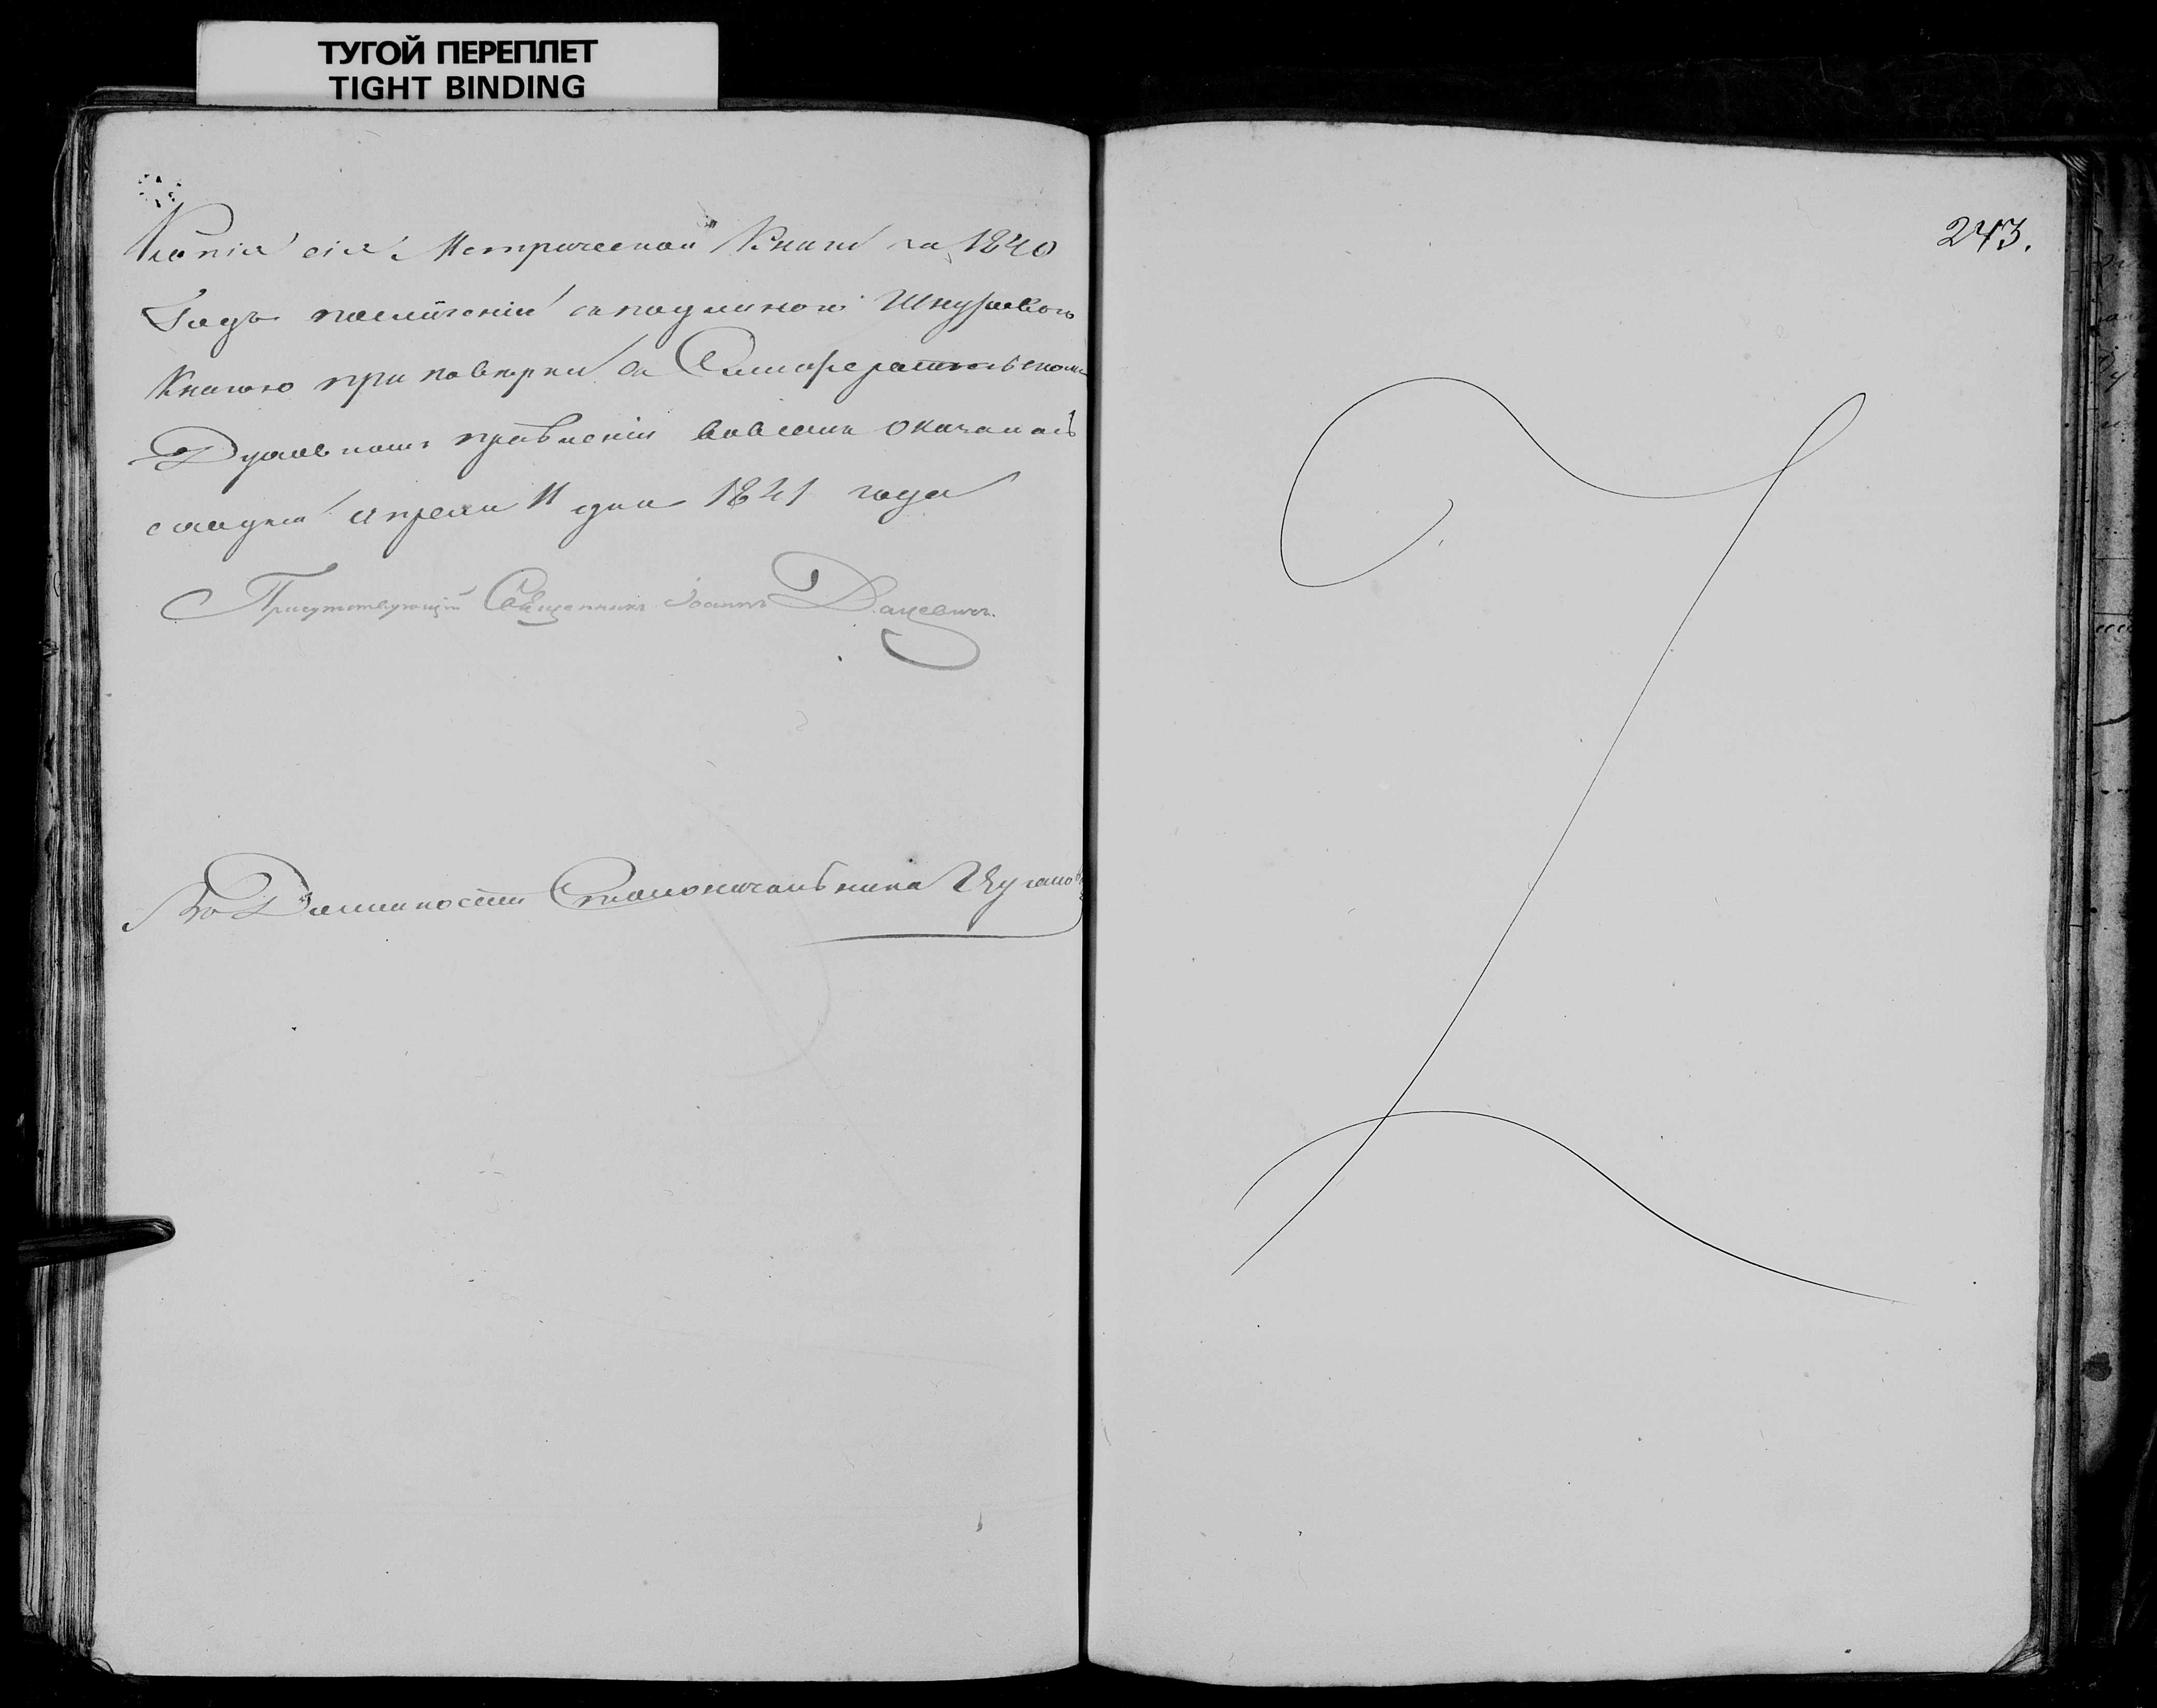 ТУГОЙ ПЕРЕПЛЕТ
TIGHT BINDING
243.
Копія сія Метрической Книги за 1840
Годъ по сличеніи съ подлиною Шнуровою
Книгою при поверки въ Симферопольскомъ
Духовномъ правленіи вовсемъ оказалась
сходна апреля 11 дня 1841 года
Присутствующій Священникъ Іоаннъ
Въ Должности Столоначальника